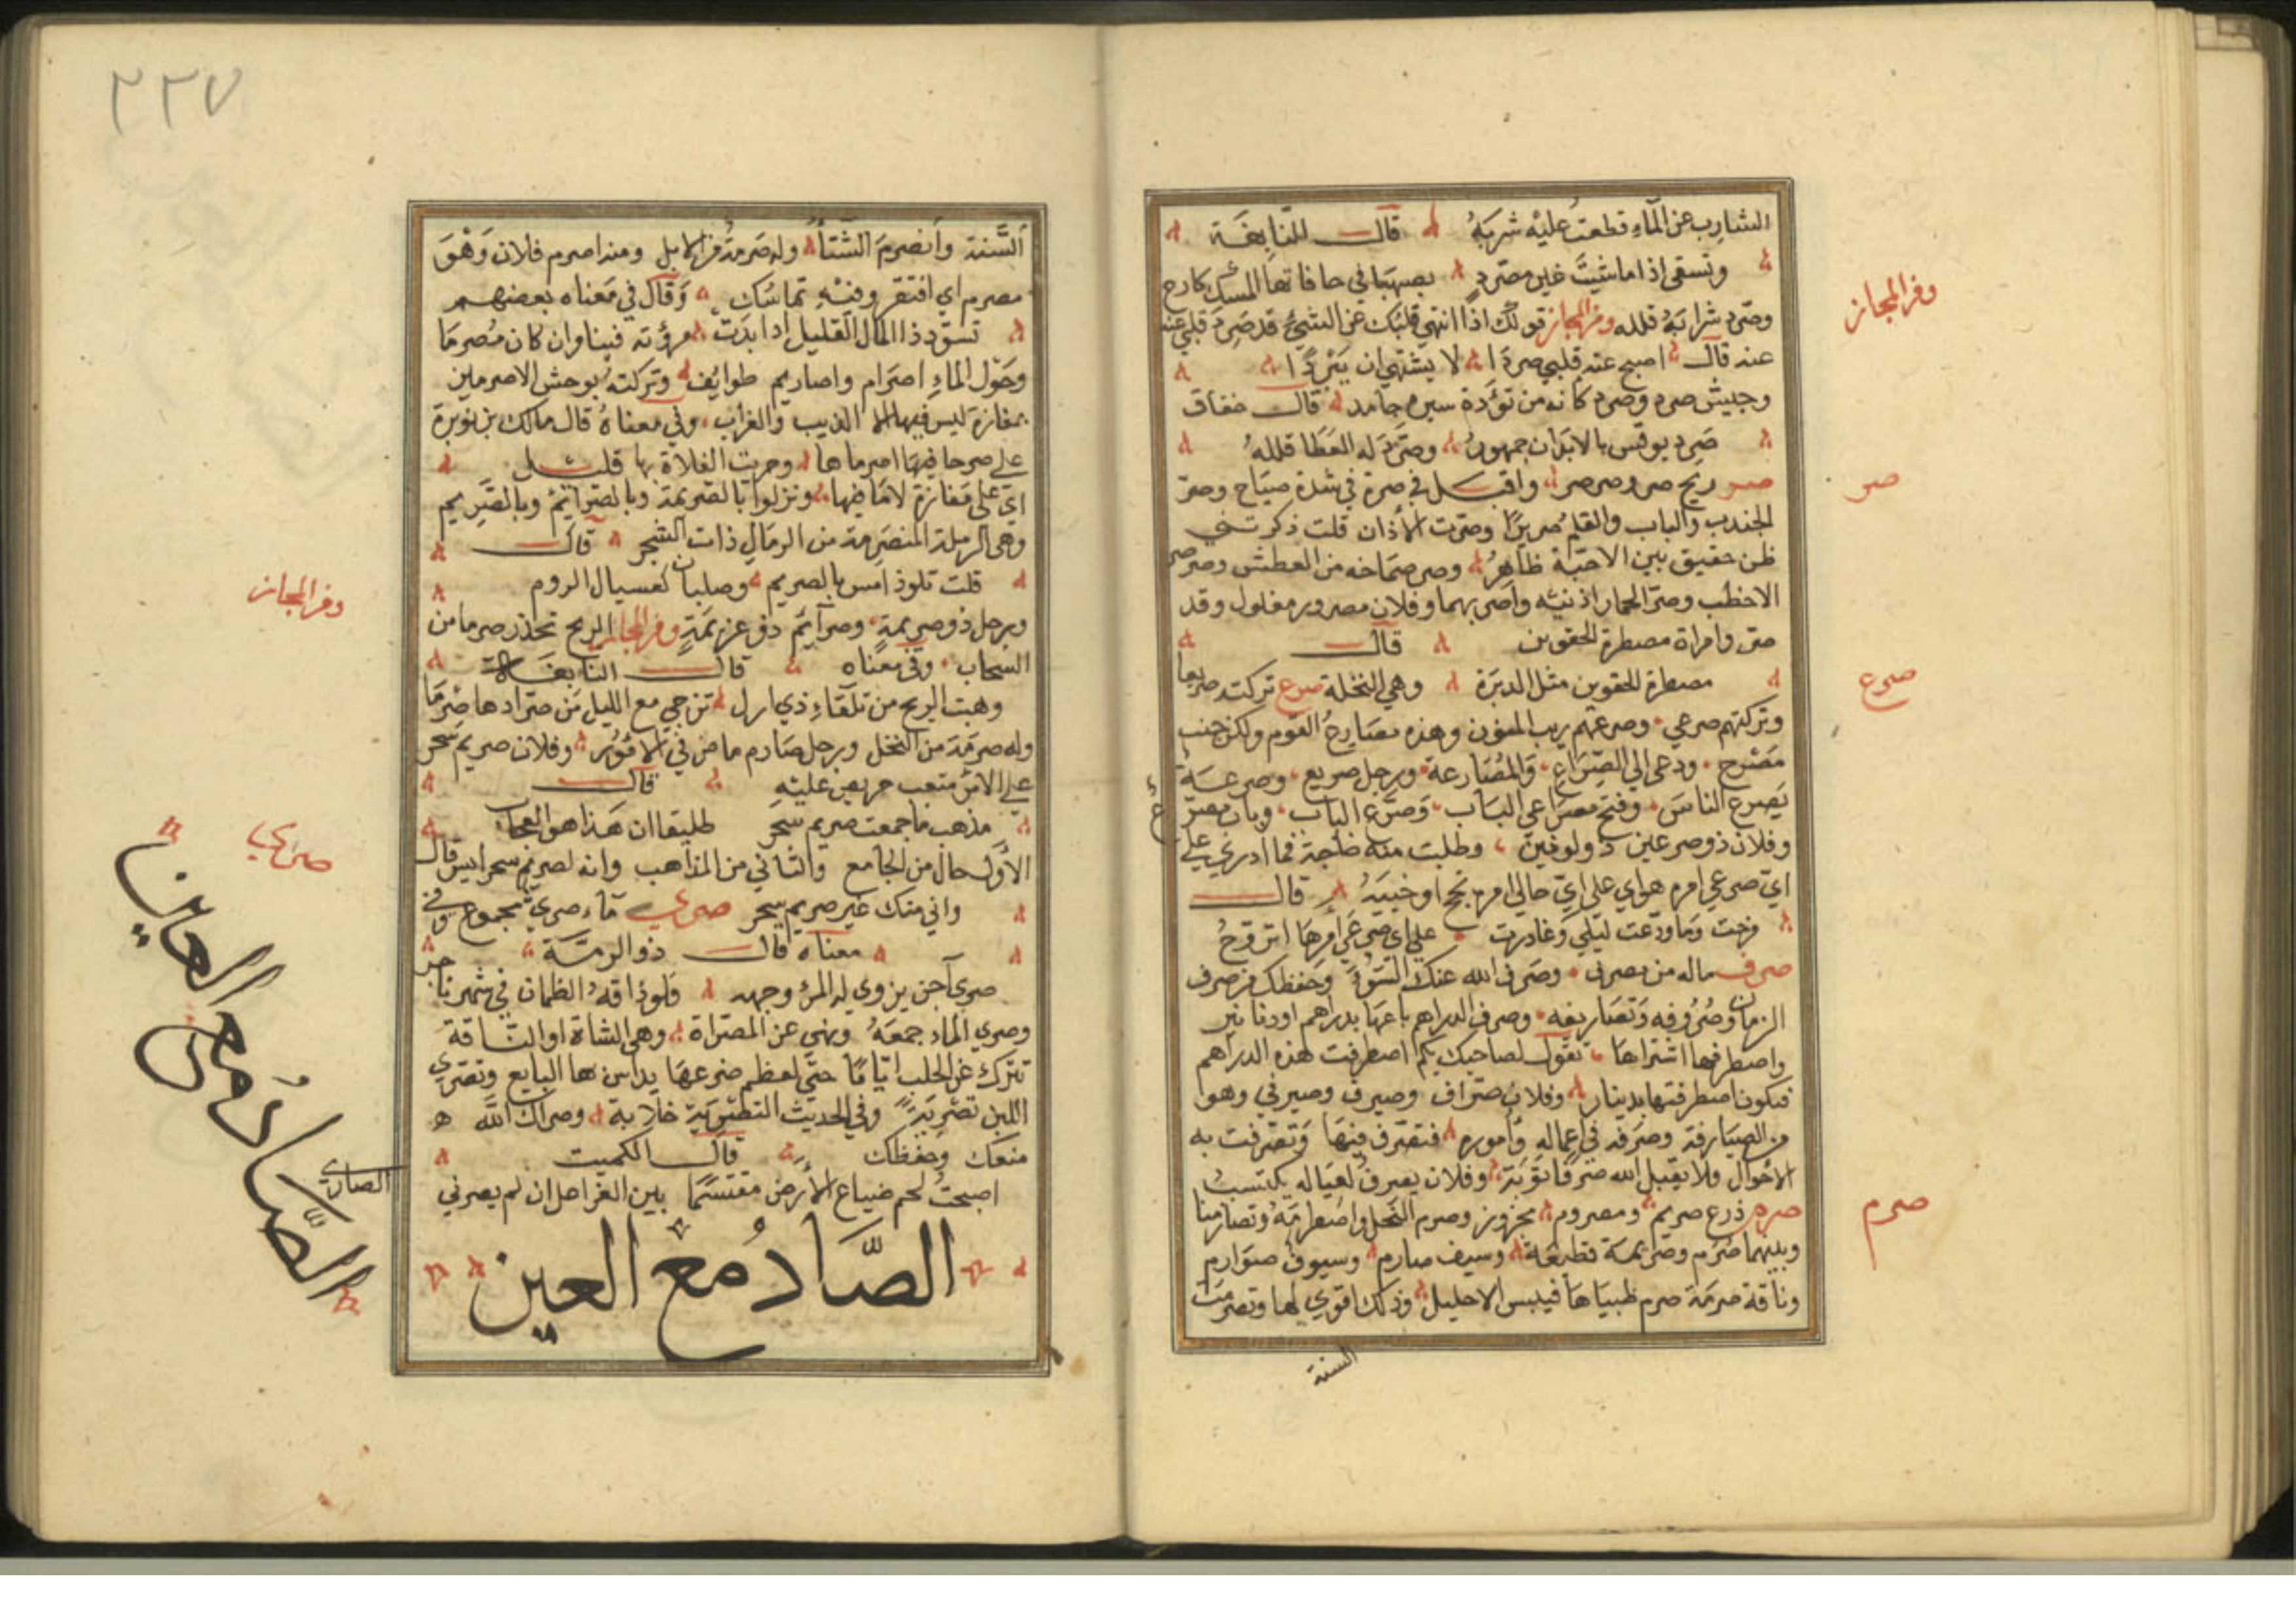 الشارب عن الماء قطعت عليه شربه قال النابغة
وتسقى اذا ما شيت غير مصرد بصهبا في حافاتها المسك كارع
وصرد شرابه قلله ومن المجاز قولك اذا انتهى قلبك عن الشيء قد صرد قلبي عنه
عند قال اصبح عند قلبي صردا لا يشتهي ان يبردا
وجيش صرد وصرد كانه من تؤدة سيره جامد قال خفاف
صرد يوقس بالابدان جمهور وصرد له العطا قلله
صر ريح صر وصرصر واقبل في صرة في شدة صياح وصر
الجندب والباب والقلم صريرا وصرت الآذان قلت ذكرتني
ظن حقيق بين الاحبة ظاهر وصر صماخه من العطش وصرصر
الاخطب وصر الحمار اذنيه واصر بهما وفلان مصرور مغلول وقد
صر وامراة مصطرة الحقوين قال
مصطرة للحقوين مثل الدبرة وهي النخلة صرع تركته صريعا
وتركتهم صرعى وصرعهم ريب المنون وهذه مصارع القوم ولكل جنب
مصرع ودعى الى الصراع والمصارعة ورجل صريع وصرعة
يصرع الناس وفتح مصراعي الباب وصرع الباب وباب مصرع
وفلان ذو صرعين ذو لونين وطلبت منه حاجة فما ادري على
اي صرعي امره هو اي على اي حالي امره نجح او خيبة قال
فرحت وما ودعت ليلى وغادرت على اي صرعي امرها اتروح
صرف ماله من مصرف وصرف الله عنك السوء وحفظك من صرف
الزمان وصروفه وتصاريفه وصرف الدراهم باعها بدراهم او دنانير
واصطرفها اشتراها تقول لصاحبك بكم اصطرفت هذه الدراهم
فيكون اصطرفتها بدينار وفلان صراف وصيرف وصيرفي وهو
من الصيارفة وصرفه في اعماله واموره فتصرف فيها وتصرفت به
الاحوال ولا يقبل الله صرفا توبة وفلان يصرف لعياله يكتسب
صرم ذرع صريم ومصروم مجزوز وصرم النخل واصطرمه وتصارمنا
وبينهما صرم وصريمة قطيعة وسيف صارم وسيوف صوارم
وناقة صرمة صرم ظبياها فيبس الاحليل وذلك اقوى لها وتصرمت
السنة
ومن المجاز
صر
صرع
صرم
٢٢٧
السنة وانصرم الشتا وله صرمة من الابل ومنه اصرم فلان وهو
مصرم اي افتقر وفيه تماسك وقال في معناه بعضهم
تسود ذا المال القليل اذا بدت مروته فينا وان كان مصرما
وحول الماء اصرام واصاريم طوايف وتركته بوحش الاصرمين
بمفازة ليس فيها الا الذيب والغراب وفي معناه قال مالك بن نويرة
على صرما فيها اصرماها وخريت الفلاة بها قليل
اي على مفازة لا ما فيها ونزلوا بالصريمة وبالصرائم وبالصريم
وهي الرملة المنصرمة من الرمال ذات الشجر قال
قلت تلوذ امس بالصريم وصلبان كسبال الروم
ورجل ذو صريمة وصرآئم ذو عزيمة ومن المجاز الريح تحذر صرما من
السحاب وفي معناه قال النابغة
وهبت الريح من تلقاء ذي ارل تزجي مع الليل من صرادها صرما
وله صرمة من النخل ورجل صارم ماض في الامور وفلان صريم سحر
على الامر متعب حريص عليه قال
مذهب ما جمعت صريم سحر طليقا ان هذا هو العجاب
الاول حال من الجامع والثاني من المذاهب وانه لصريم سحر ايس قال
واني منك غير صريم سحر صرى ماء صرى مجموع وفي
معناه قال ذو الرمة
صرى آجن يزوي له المرؤ وجهه ولو ذاقه الظمان في شهر ناجر
وصرى الماء جمعه ونهى عن المصراة وهي الشاة او الناقة
تترك عن الحلب اياما حتى لعظم ضرعها يدلس بها البايع وتصرى
اللبن تصرية وفي الحديث التصرية خلابة وصراك الله
منعك وحفظك قال الكميت
اصبحت لحم ضباع الارض مقتسما بين الفراعل ان لم يصرني
الصاري
الصاد مع العين
ومن المجاز
صرى
الصاد مع العين